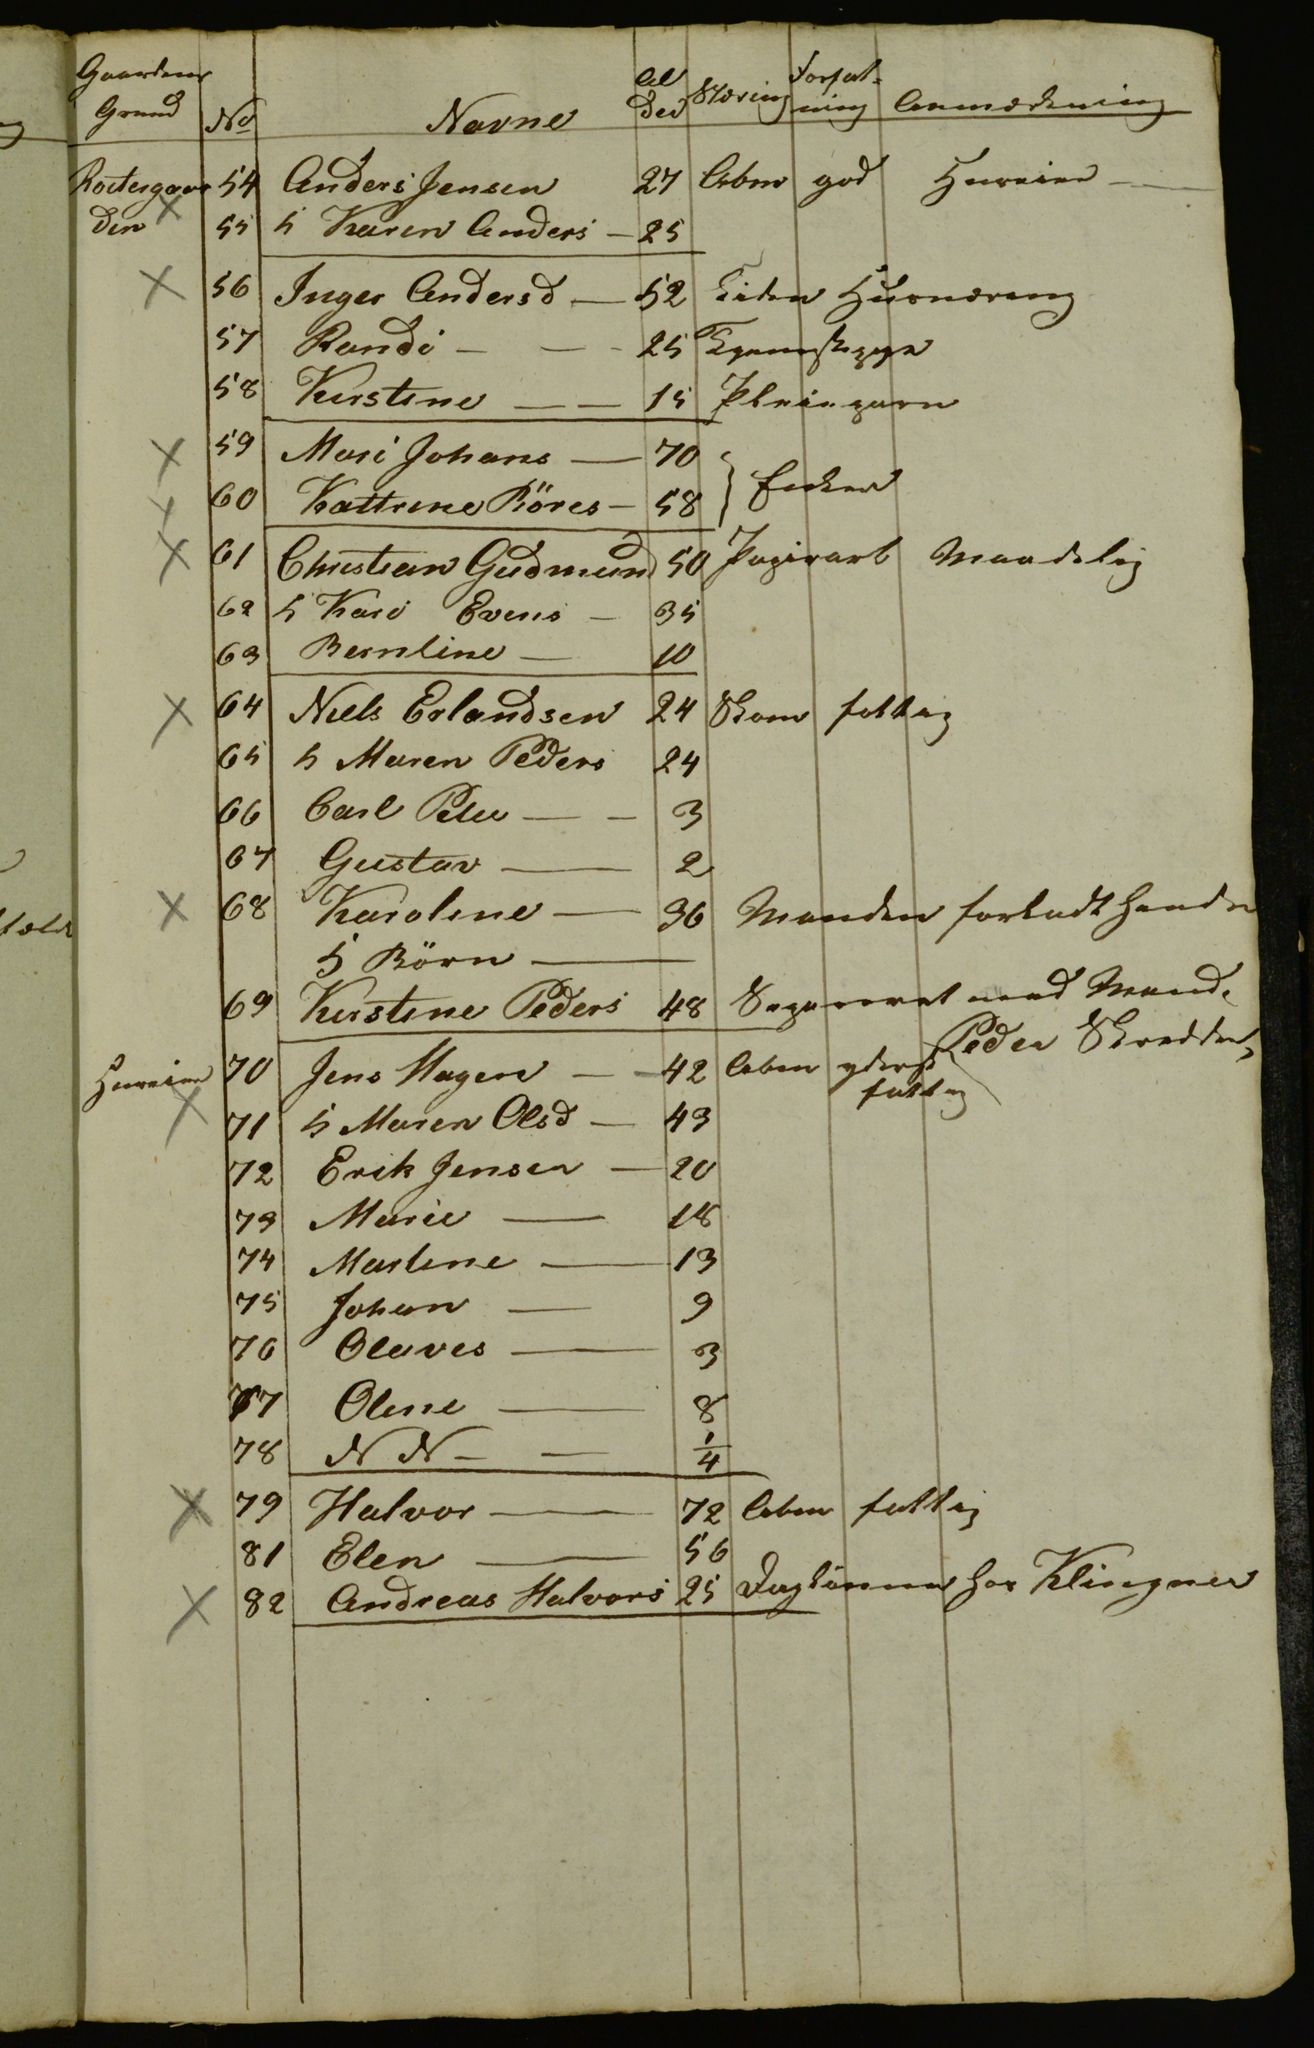 Gaardens Grund No Navne Alder Næring Forfatning Anmærkning
54 Anders Jensen 27 Arbm god Huuseier
den 55 h Karen Anders - 25
56 Inger Andersd - 52 Liden Huusnæring
57 Randi - - 25
58 Kirstine - - 15
59 Mari Johans - 70
60 Kattrine Böres - 58 } Enker
61 Christian Gudmund 50 Papirarb Maadelig
62 h Kari Evens - 35
63 Bernline - 10
64 Niels Erlandsen 24 Skom fattig
65 h Maren Peders 24
66 Carl Peter - - 3
67 Gustav - 2
68 Karoline - 36 Manden forladt hende
5 Börn -
69 Kirstine Peders 48 Separeret med Mand.
Peder Skredder
Huuseier 70 Jens Hagen - 42 Arbm yderst
fattig
71 h Maren Olsd - 43
72 Erik Jensen - 20
73 Marie - 18
74 Martine - 13
75 Johan - 9
76 Olaves - 3
77 Oline - 8
78 N N - - 1/4
79 Halvor - 72 Arbm fattig
81 Elen - 56
82 Andreas Halvors 25 Daglönner hos Klingner